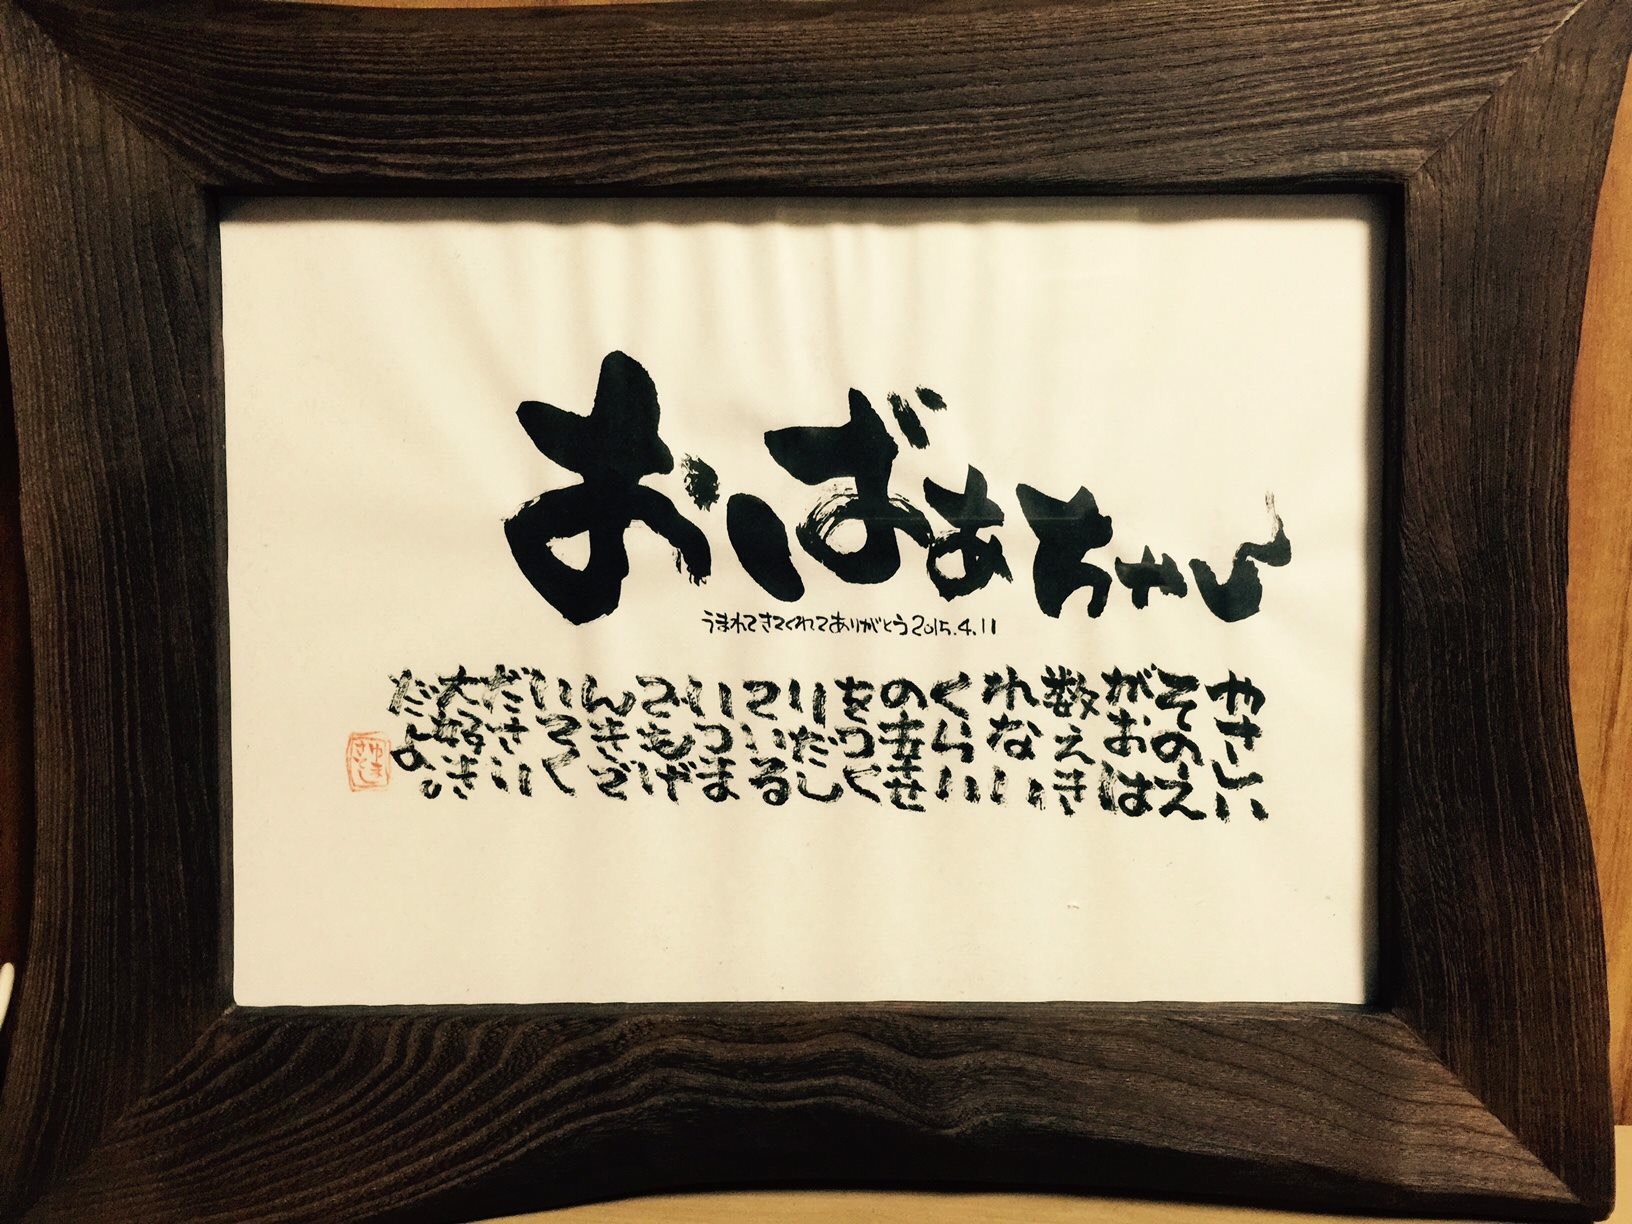 おばあちゃん
うまれてきてくれてありがとう2015.4.11
やさしい
そのえ
がおは
数えき
れない
くらい
の幸せ
をつく
りだし
ている
いつま
でもげ
んきで
いてく
ださい
大好き
だよ。